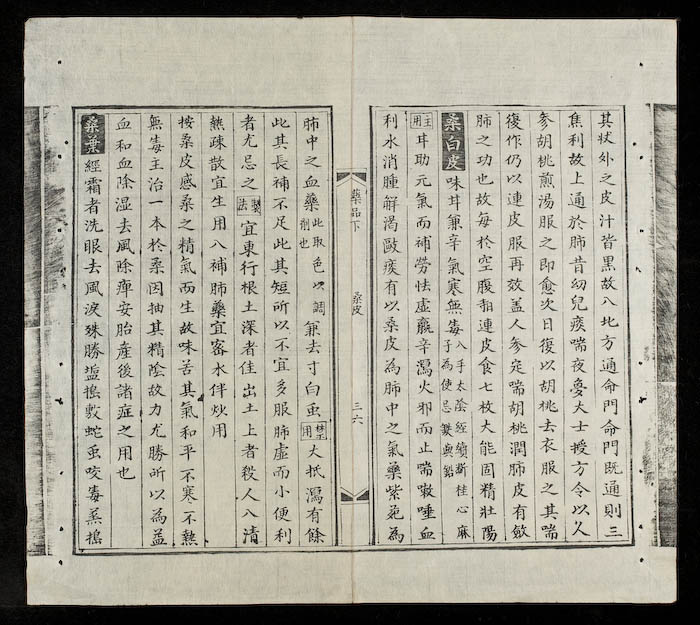 其狀外之皮汁皆黑故入北方通命門命門既通則三
焦利故上通於肺昔幼兒痰喘夜夢大士授方令以人
參胡桃煎湯服之即愈次日復以胡桃去衣服之其喘
復作仍以連皮服再效蓋人參定喘胡桃潤肺皮有歛
肺之功也故每於空腹和連皮食七枚大能固精壯陽
桑白皮 味甘兼辛氣寒無毒入手太陰經續斷桂心麻子為使忌鐵與鉛
主用甘助元氣而補勞怯虛羸辛瀉火邪而止喘嗽唾血
利水消腫解渴敺痰有以桑皮為肺中之氣藥紫菀為
藥品下 桑皮 三六
肺中之血藥此取色以調劑也兼去寸白虫禁用大抵瀉有餘
此其長補不足此其短所以不宜多服肺虛而小便利
者尤忌之製法宜東行根土深者佳出土上者殺人入清
熱疎散宜生用入補肺藥宜蜜水伴炒用
按桑皮感桑之精氣而生故味苦其氣和平不寒不熱
無毒主治一本於桑因抽其精陰故力尤勝所以為益
血和血除湿去風除痺安胎産後諸症之用也
桑葉 經霜者洗眼去風淚殊勝塩搗敷蛇虫咬毒蒸搗